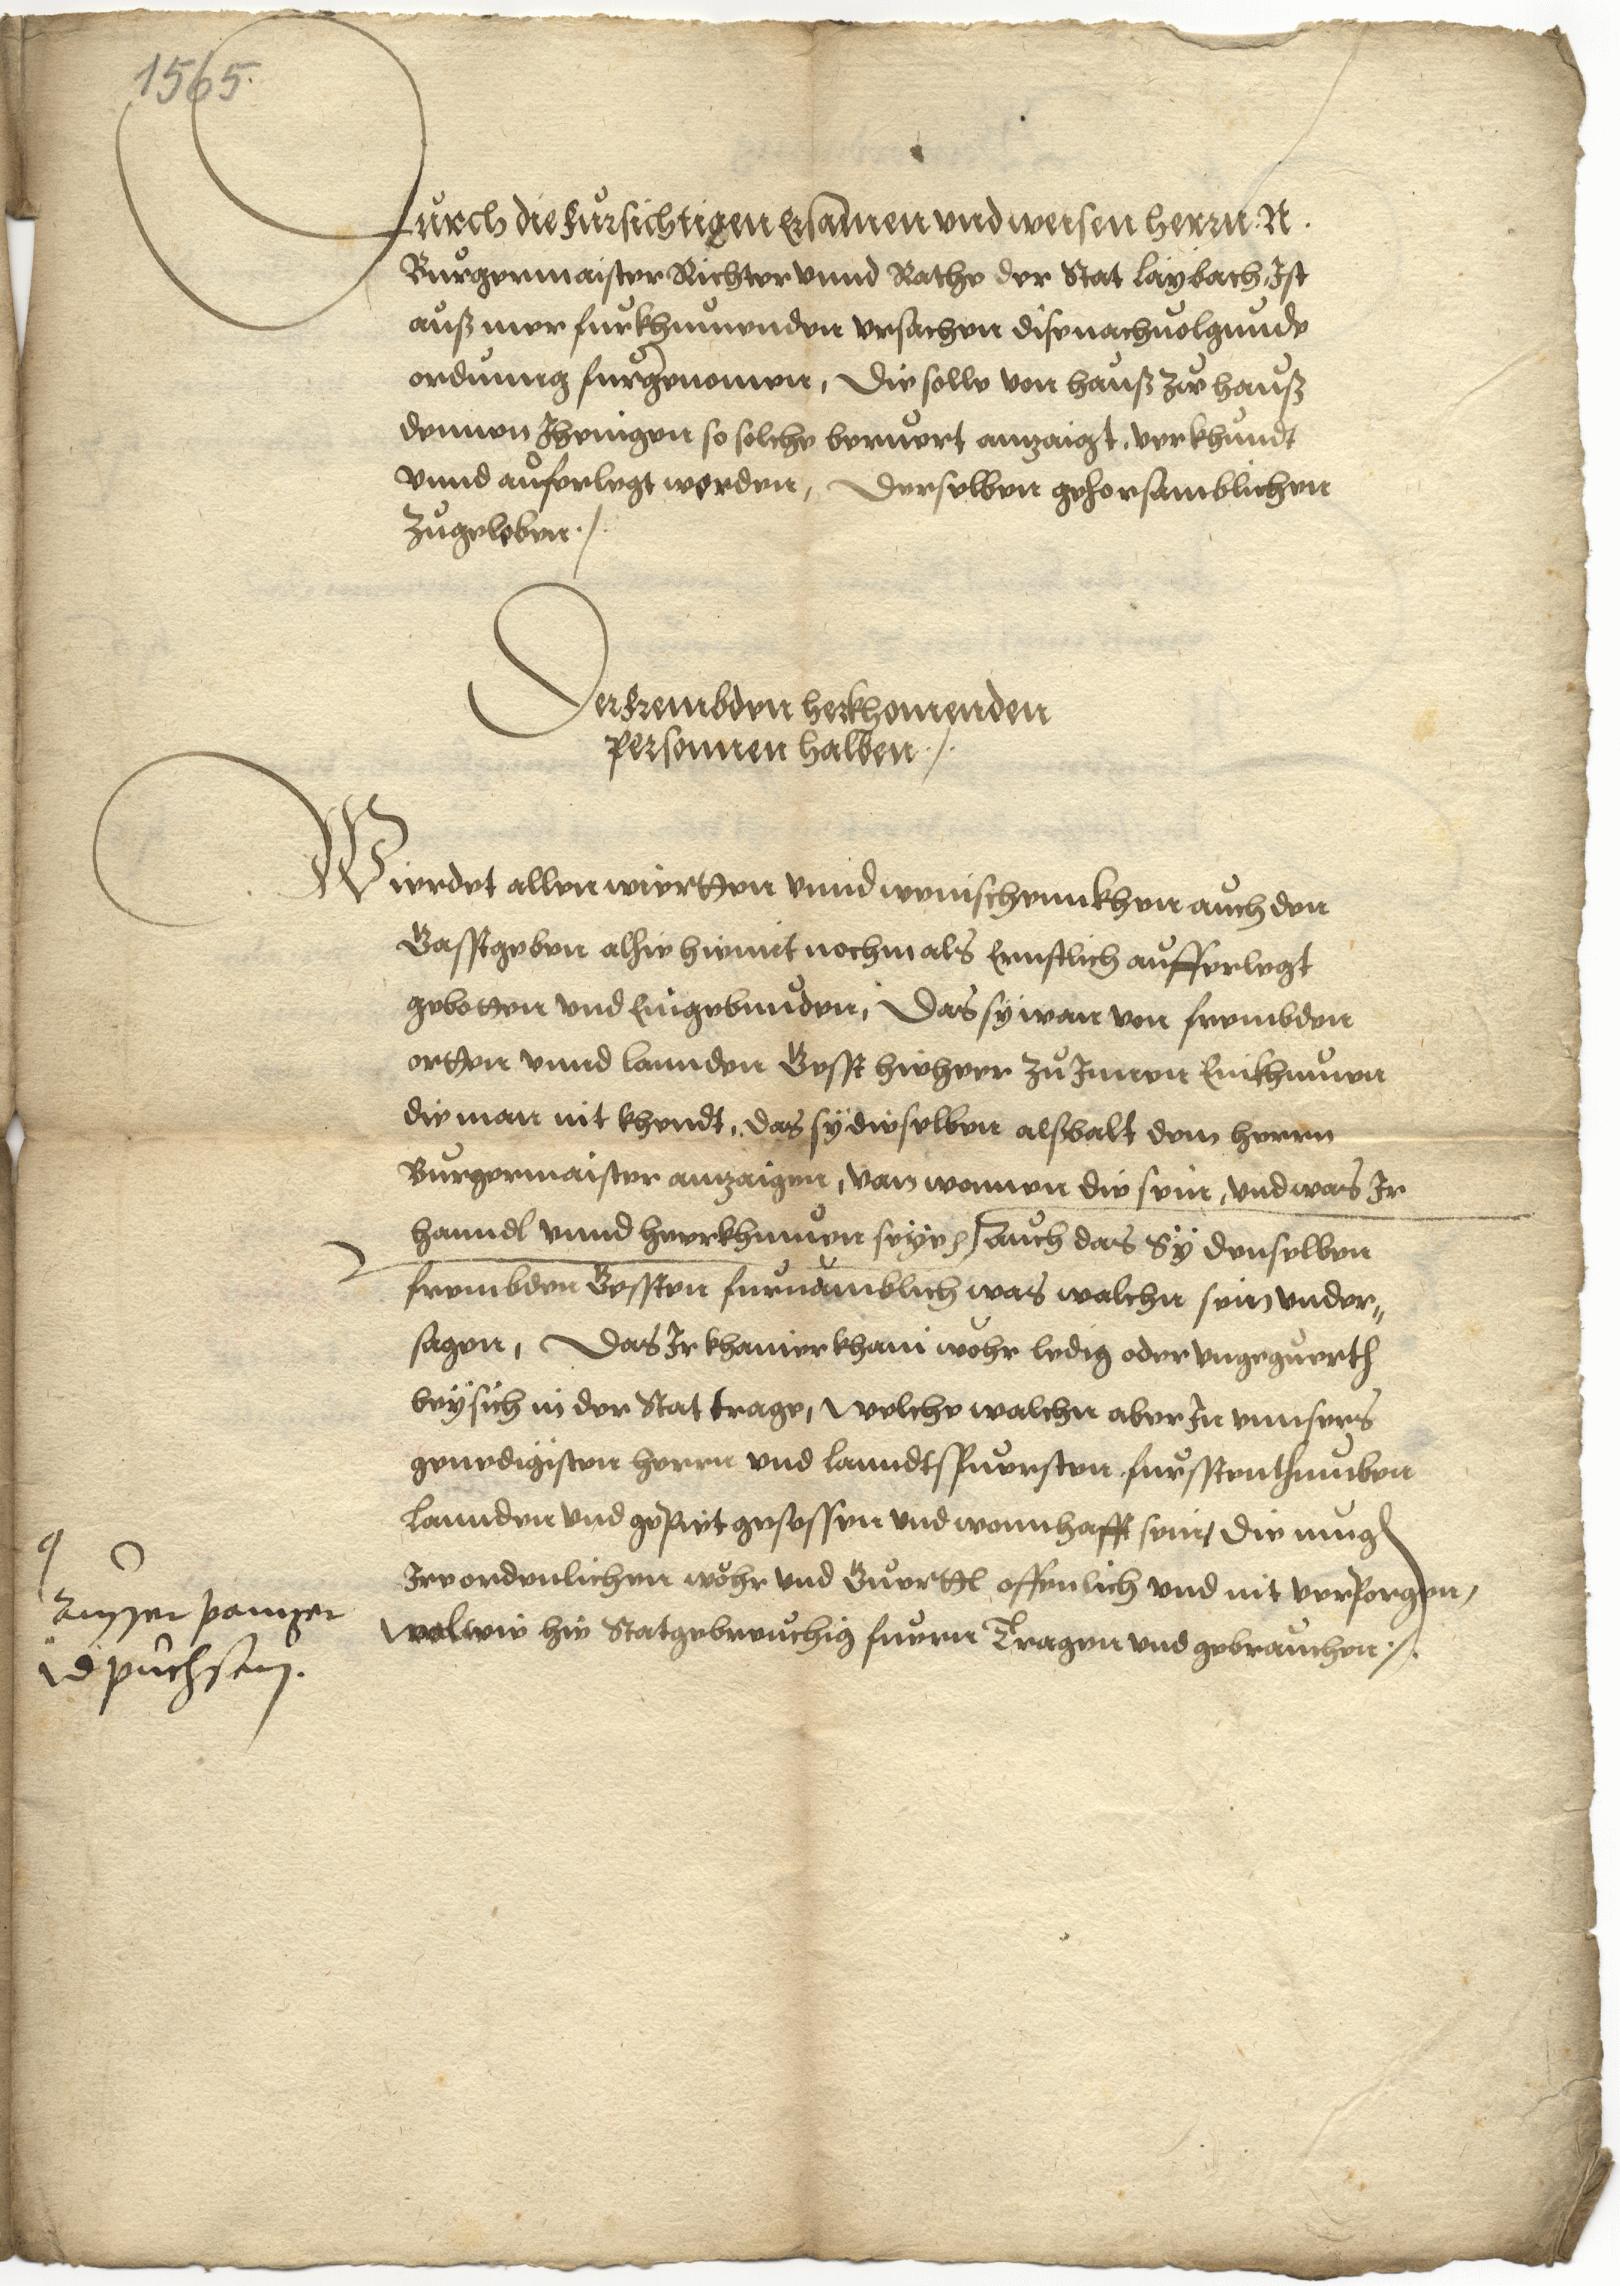 1565.
Durch die fürsichtigen Ersamen vnd weisen herrn. N.
Burgermaister Richter vnnd Rathe der Stat laybach, Ist
auß mer furkhumenden vrsachen dise nachuolgunde
ordnung furgenomen, Die solle von hauß zu hauß
dennen Jhenigen so solche beruert anzaigt, verkhundt
vnnd auferlegt werden, Derselben gehorsamblichen
zugeleben ./.
Der frembden herkhomenden
personnen halben ./.
Wierdet allen wierthen vnnd weinschennkhen auch den
Gasstgeben alhie hiemit nochmals Ernstlich aufferlegt
gebotten vnd Eingebunden, Das sy wan von frembden
ortten vnnd lannden Gesst hieheer zu Jnnen Einkhumen
die man nit khendt, das sy dieselben alßbalt dem herrn
Burgermaister anzaigen, van wannen die sein, vnd was Jr
hanndl vnnd heerkhumen seye, auch das Sy denselben
frembden Gessten furnämblich was walchn sein vnder„
sagen, Das Jr khainer khain wöhr ledig oder vngeguerth
bey sich in der Stat trage, Welche walchn aber Jn vnnsers
genedigisten herrn vnd lanndtsfuersten fursstenthumben
lannden vnd gepiet gesessen vnd wonnhafft sein, die mugen
Jre ordenlichen wöhr vnd Guerttl offenlich vnd nit verporgen,
wol wie hie Statgebreuchig fuern Tragen vnd gebrauchen ./.
ausser panzer
vnd puchsen.